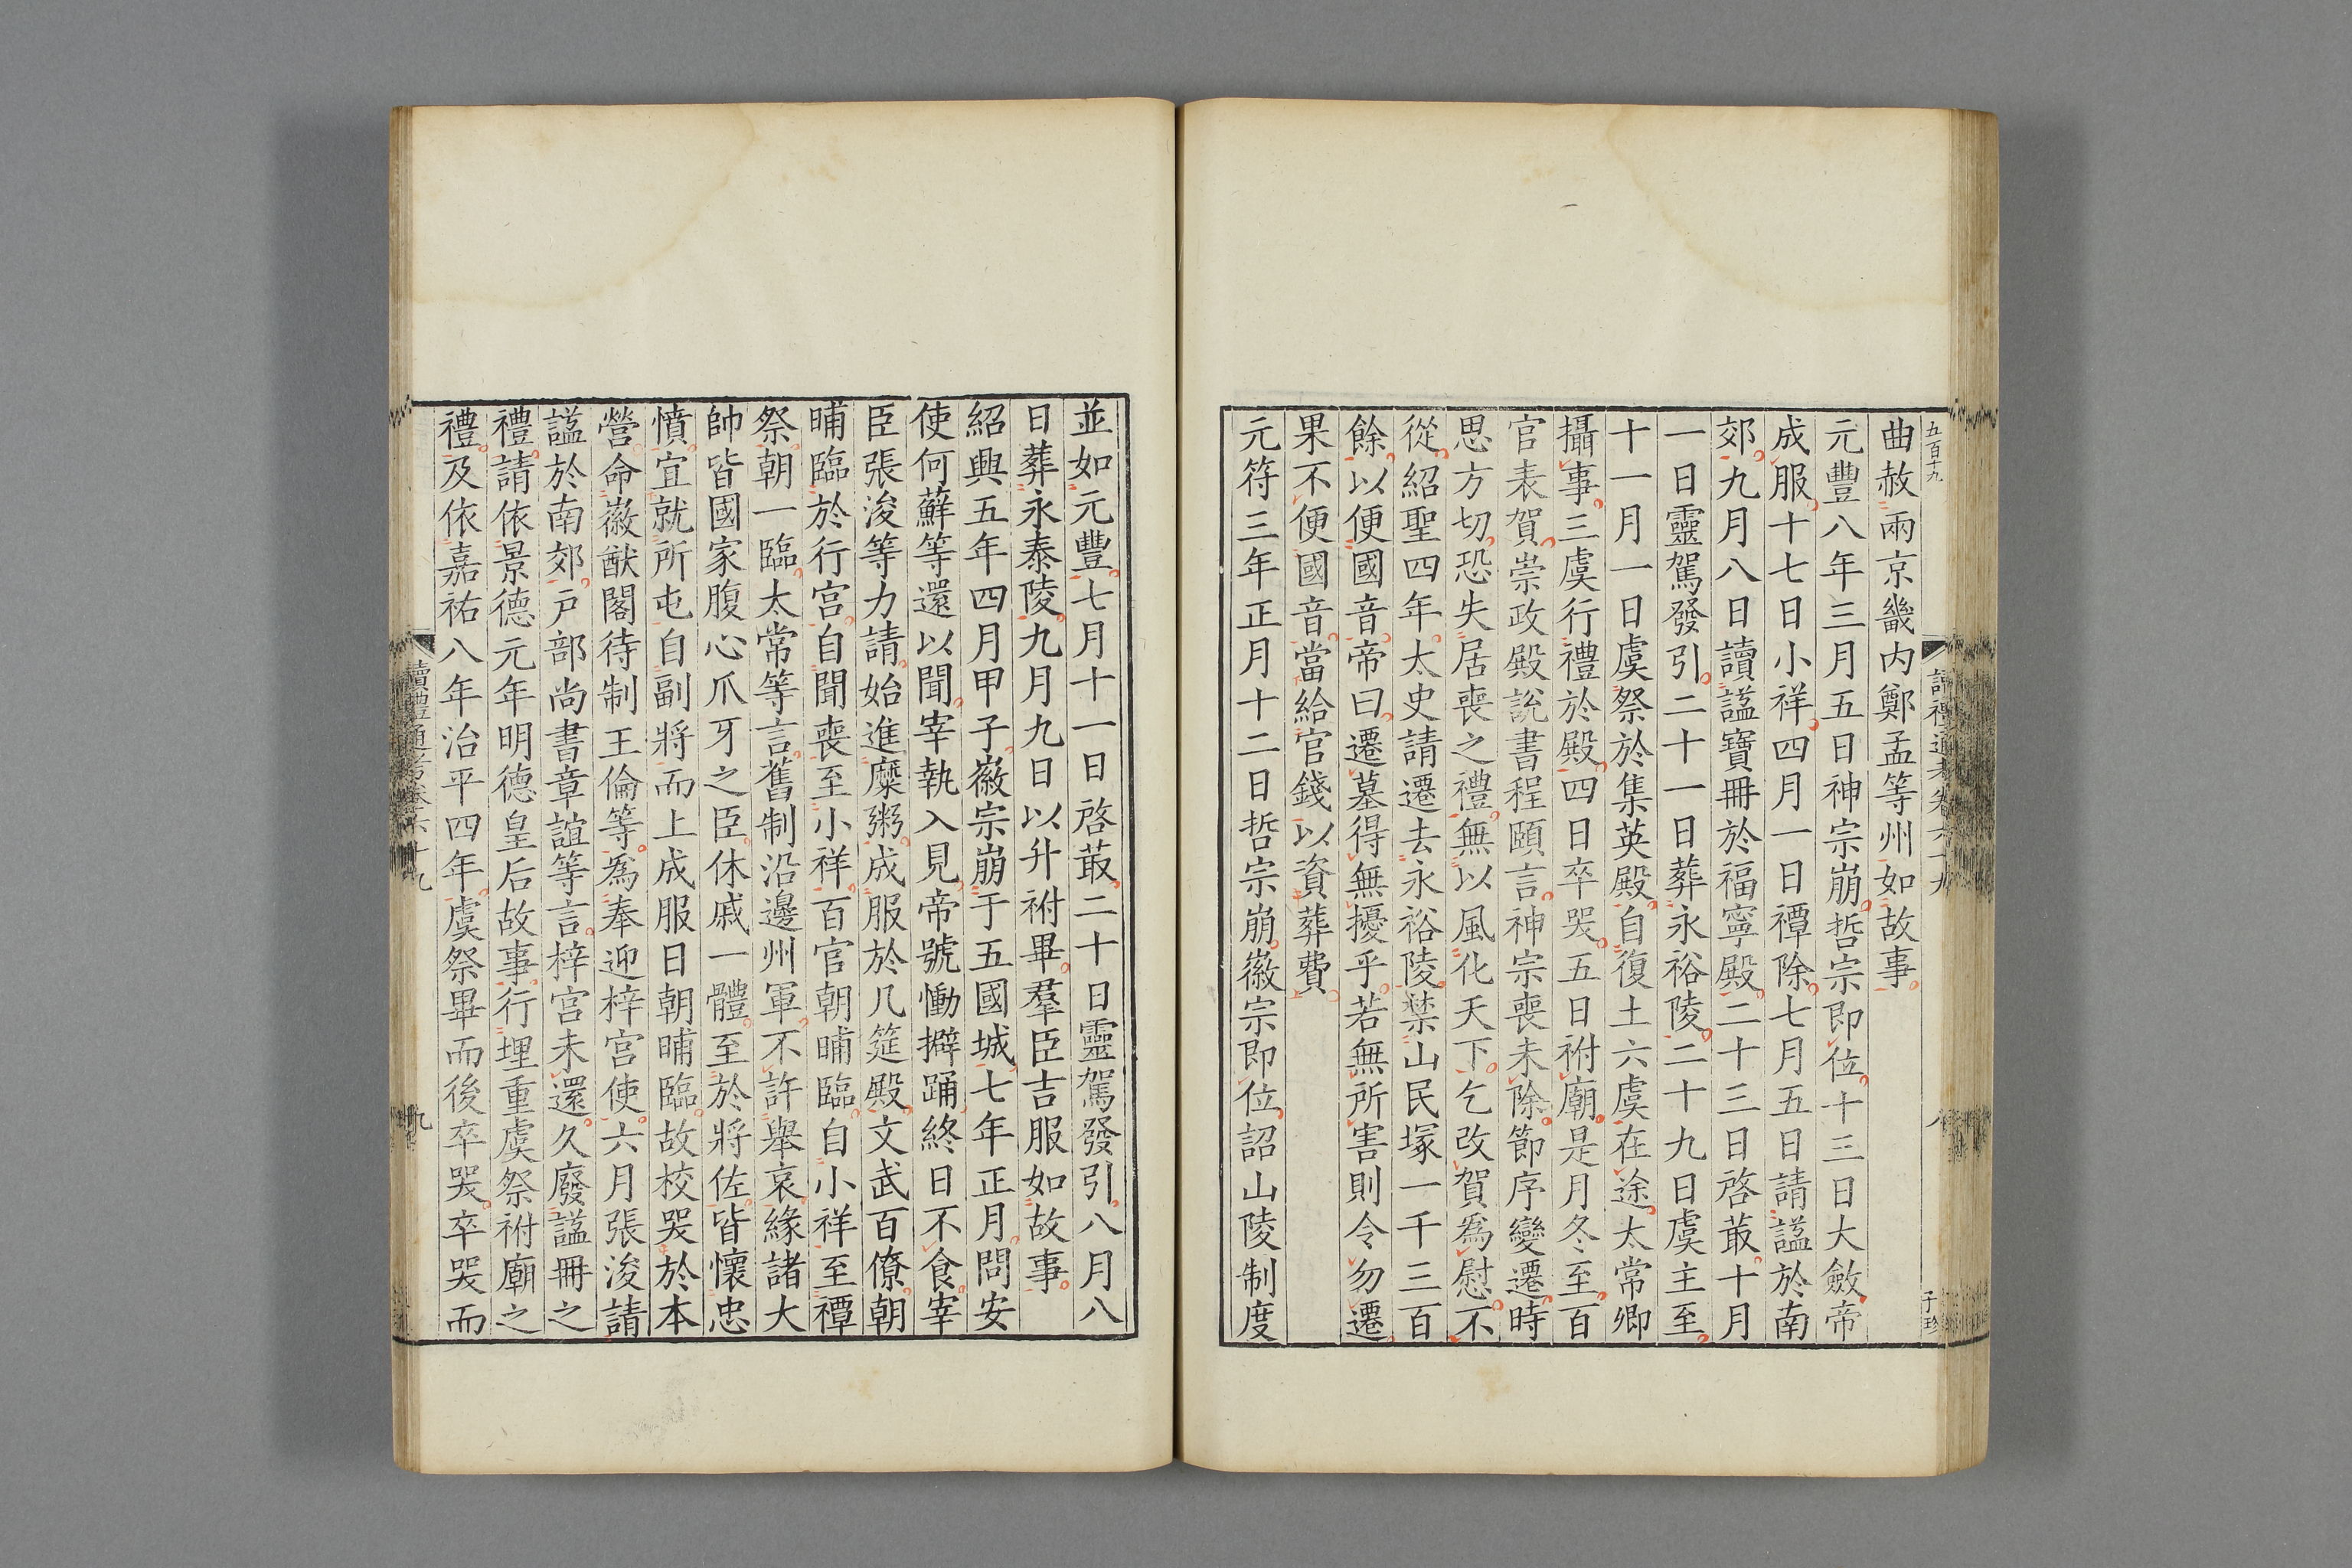 五百十九
曲赦兩京畿内鄭孟等州如故事
元豐八年三月五日神宗崩哲宗即位十三日大斂帝
成服十七日小祥四月一日禫除七月五日請謚於南
郊九月八日讀謚寶冊於福寧殿二十三日啓菆十月
一日靈駕發引二十一日葬永裕陵二十九日虞主至
十一月一日虞祭於集英殿自復土六虞在途太常卿
攝事三虞行禮於殿四日卒哭五日祔廟是月冬至百
官表賀崇政殿說書程頤言神宗喪未除節序變遷時
思方切恐失居喪之禮無以風化天下乞改賀爲慰不
從紹聖四年太史請遷去永裕陵禁山民塚一千三百
餘以便國音帝曰遷墓得無擾乎若無所害則令勿遷
果不便國音當給官錢以資葬費
元符三年正月十二日哲宗崩徽宗即位詔山陵制度
並如元豐七月十一日啓菆二十日靈駕發引八月八
日葬永泰陵九月九日以升祔畢羣臣吉服如故事
紹興五年四月甲子徽宗崩于五國城七年正月問安
使何蘚等還以聞宰執入見帝號慟擗踊終日不食宰
臣張浚等力請始進糜粥成服於几筵殿文武百僚朝
晡臨於行宮自聞喪至小祥百官朝晡臨自小祥至禫
祭朝一臨太常等言舊制沿邊州軍不許舉哀緣諸大
帥皆國家腹心爪牙之臣休戚一體至於將佐皆懷忠
憤宜就所屯自副將而上成服日朝晡臨故校哭於本
營命徽猷閣待制王倫等爲奉迎梓宮使六月張浚請
謚於南郊戶部尚書章誼等言梓宮未還久廢謚冊之
禮請依景德元年明德皇后故事行埋重虞祭祔廟之
禮及依嘉祐八年治平四年虞祭畢而後卒哭卒哭而
讀禮通考卷六十九
九